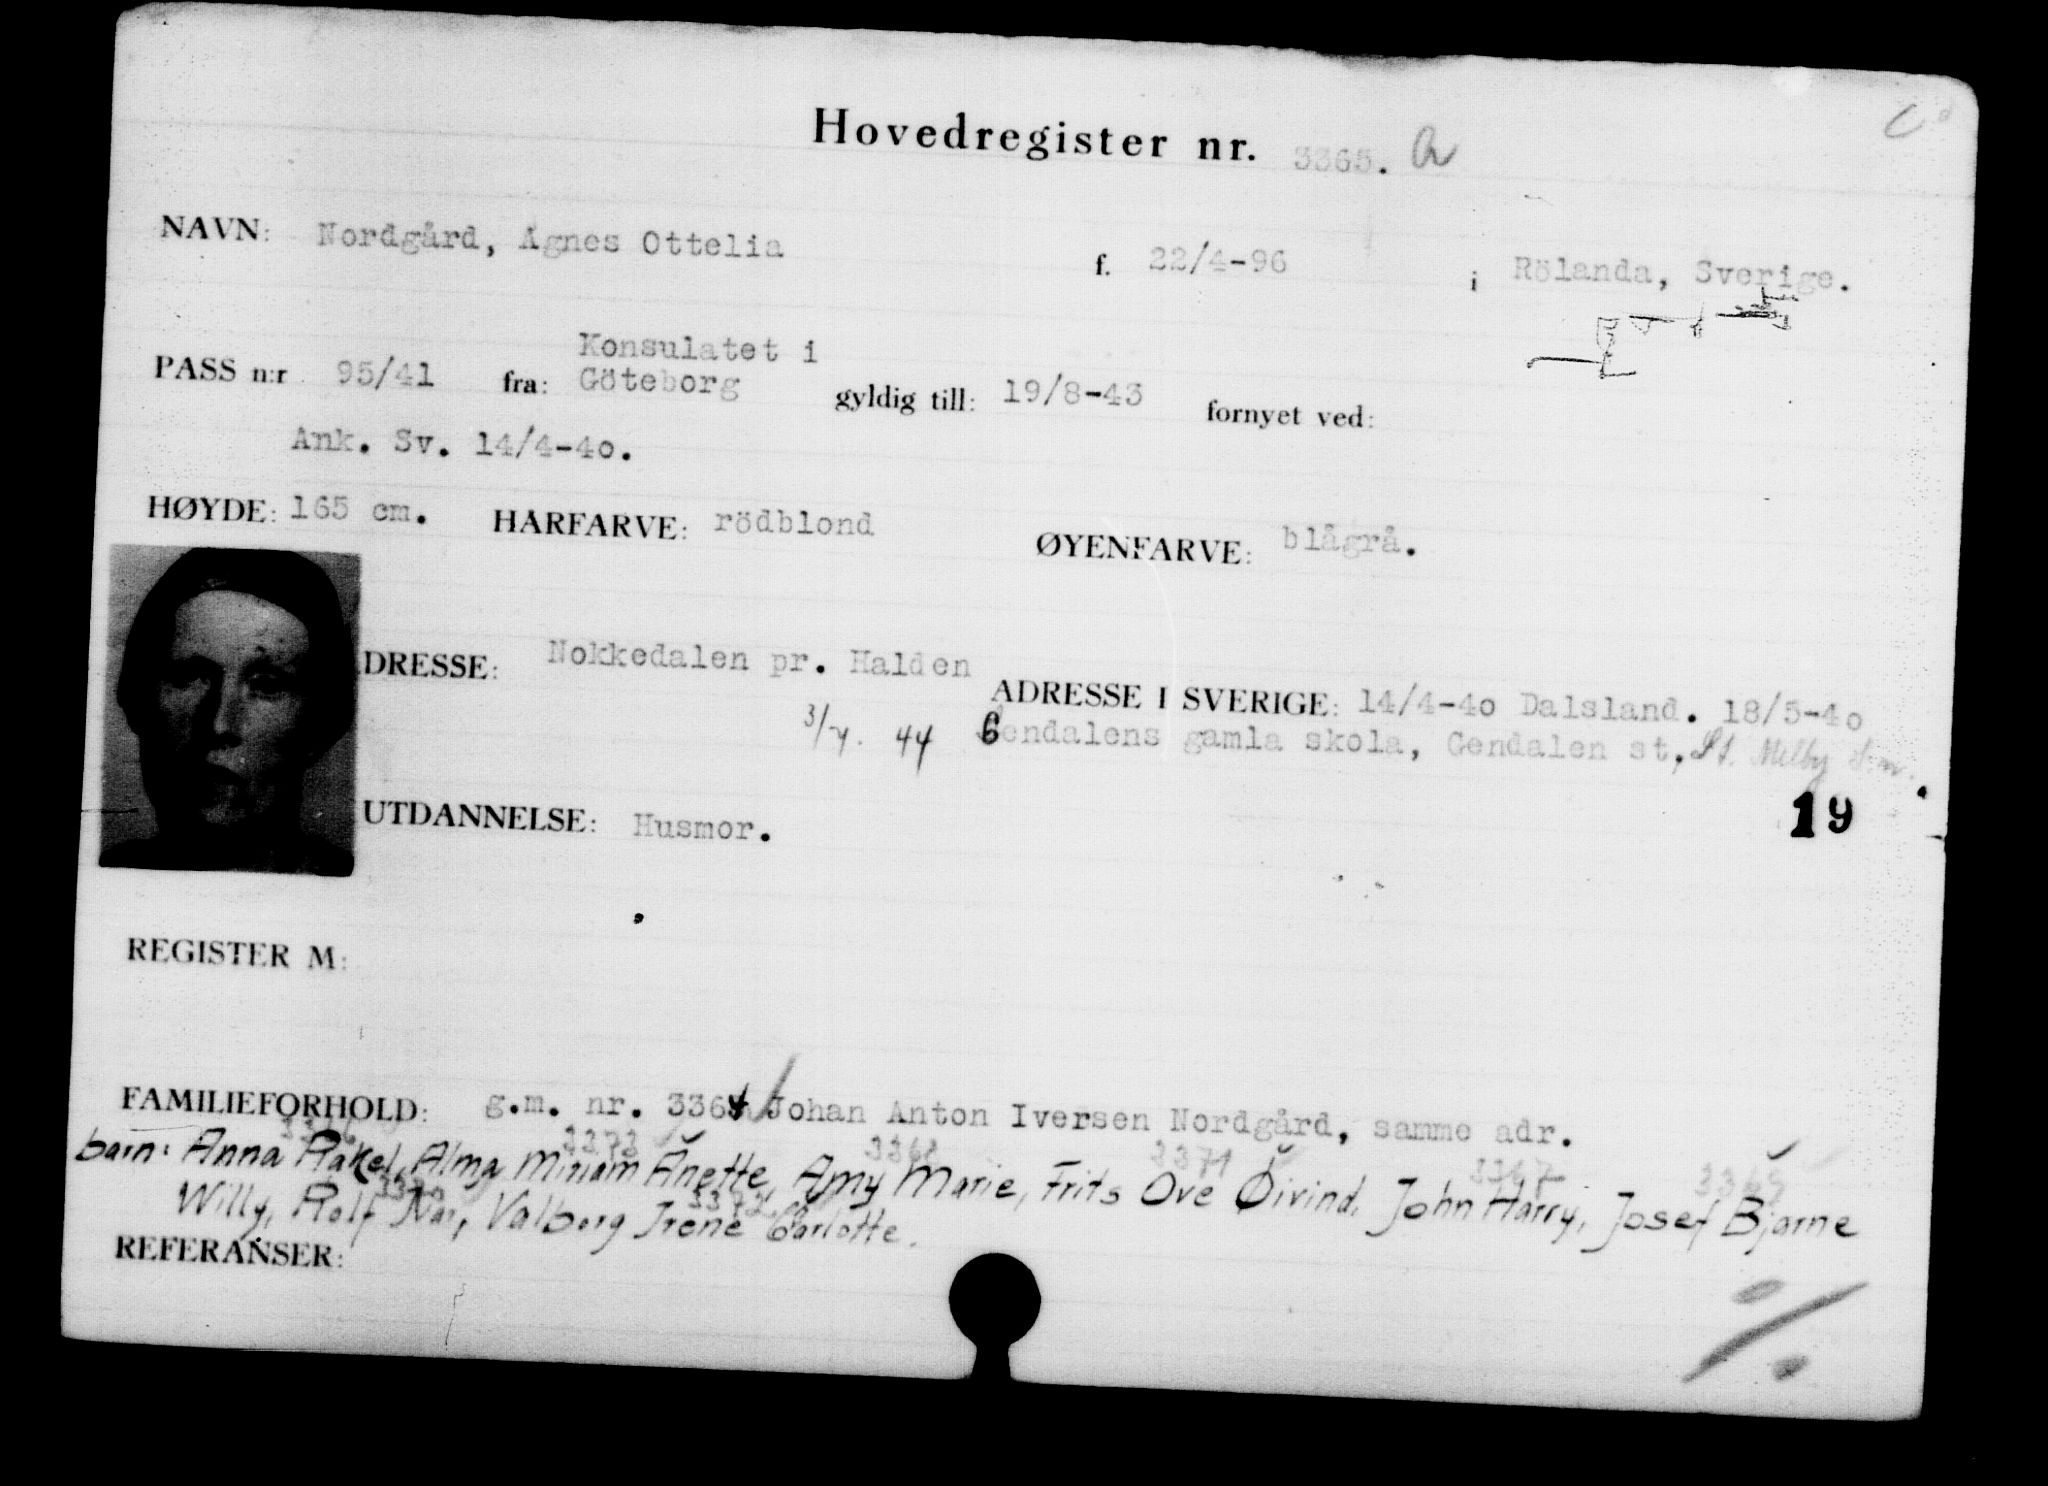 Hovedregister nr. 3365. a
NAVN: Nordgård, Agnes Ottelia f. 22/4-96 i Rölanda, Sverige.
Konsulatet i
PASS n:r 95/41 fra: Göteborg gyldig till: 19/8-43 fornyet ved:
Ank. Sv. 14/4-40.
HØYDE: 165 cm. HÅRFARVE: rödblond ØYENFARVE: blågrå.
DRESSE: Nokkedalen pr. Halden
ADRESSE I SVERIGE: 14/4-40 Dalsland. 18/5-40
3/7. 44 Gendalens gamla skola, Gendalen st, St. Melby
19
UTDANNELSE: Husmor.
REGISTER M:
FAMILIEFORHOLD: g.m. nr. 3364 Johan Anton Iversen Nordgård, samme adr.
3373 3368 3371 3367 3369
barn: Anna Rakel, Alma Miriam Anette, Amy Marie, Frits Ove Øivind, John Harry, Josef Bjarne
3372
Willy, Rolf Nor, Valborg Irene Carlotte.
REFERANSER: